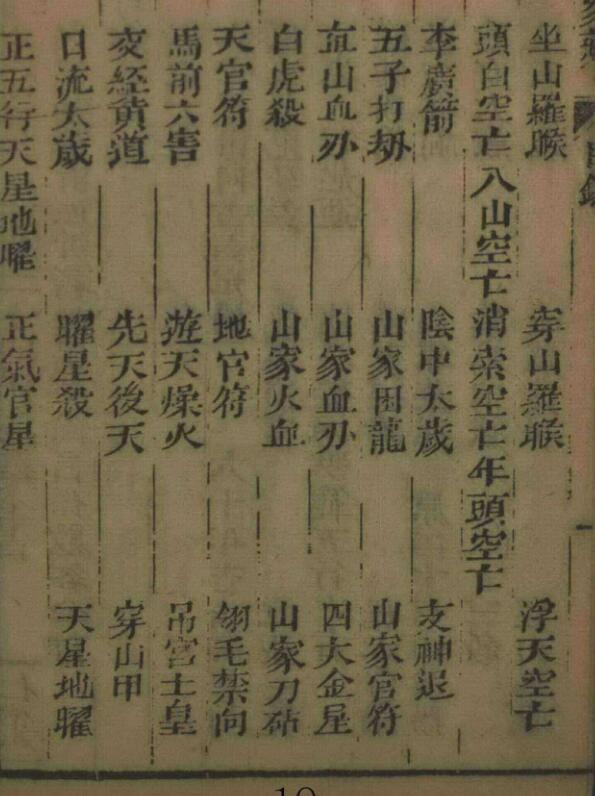 坐山羅睺 穿山羅睺 浮天空亡
頭白空亡 入山空亡 消索空亡 年頭空亡
李廣箭 陰中太歲 支神退
五子打劫 山家困龍 山家官符
血刃 山家血刃 四大金星
白虎殺 山家火血 山家刀砧
天官符 地官符 翎毛禁向
馬前六害 遊天燥火 吊宮土皇
交經黃道 先天後天 穿山甲
流太歲 曜星殺 天星地曜
正五行天星地曜 正氣官星
10